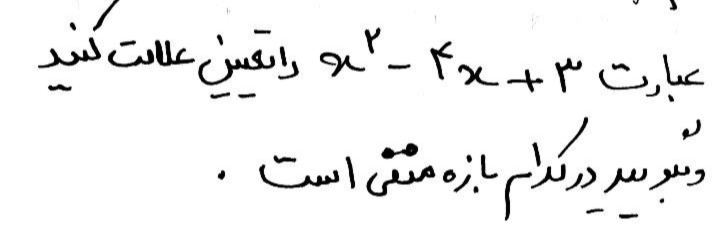 عبارت x² - ۴x + ۳ را تعیین علامت کنید
و بگویید در کدام بازه منفی است .